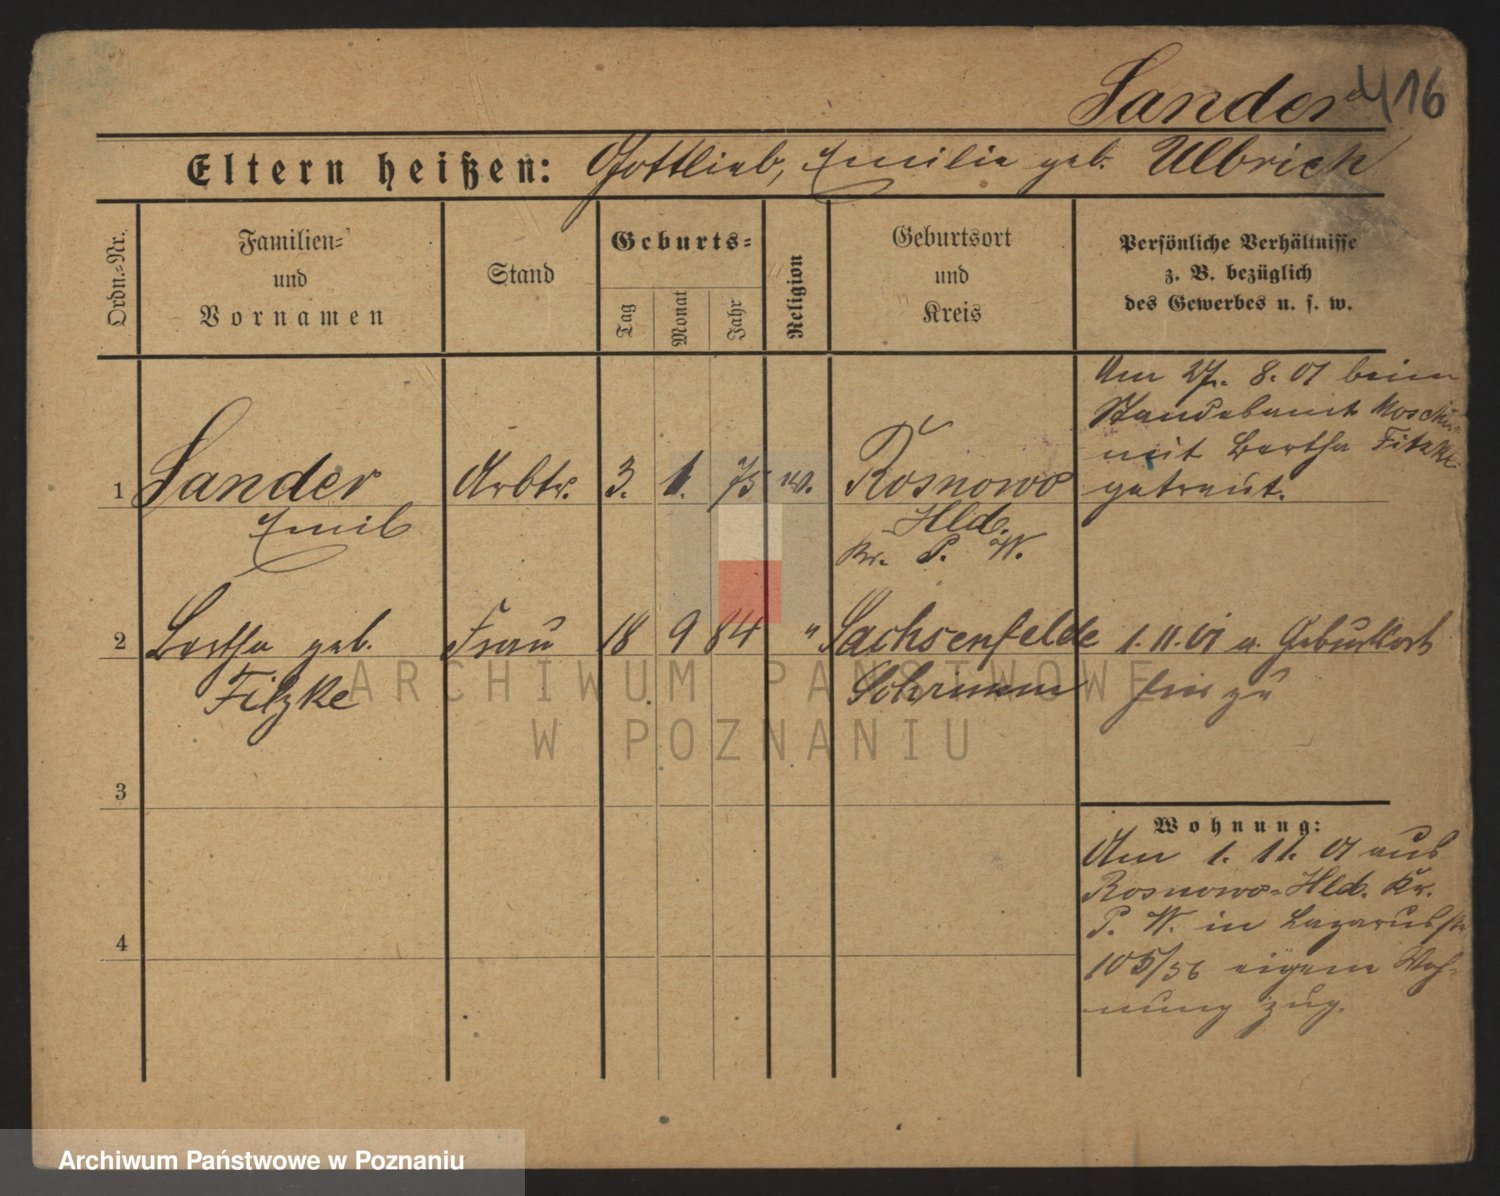 Sander
416
Eltern heißen: Gottlieb, Emilie geb. Ulbrich
Ordn.-Nr.
Familien-
und
Vornamen
Stand
Geburts-
Tag
Monat
Jahr
Religion
Geburtsort
und
Kreis
Persönliche Verhältnisse
z. B. bezüglich
des Gewerbes u. s. w.
1 Sander Arbtr. 3. 1. 75 ev. Rosnowo
Emil
Hld.
Kr. P. W.
Am 27. 8. 01 beim
Standesamt Moschin
mit Bertha Fitzke
getraut.
2 Bertha geb. Frau 18 9 84 " Sachsenfelde 1. 11. 01 a. Geburtsort
Fitzke Schrimm hier zu
3
4
Wohnung:
Am 1. 11. 01 aus
Rosnowo-Hld. Kr.
P. W. in Lazarusstr
105/56 eigene Woh-
nung zug.
ARCHIWUM PAŃSTWOWE
W POZNANIU
Archiwum Państwowe w Poznaniu